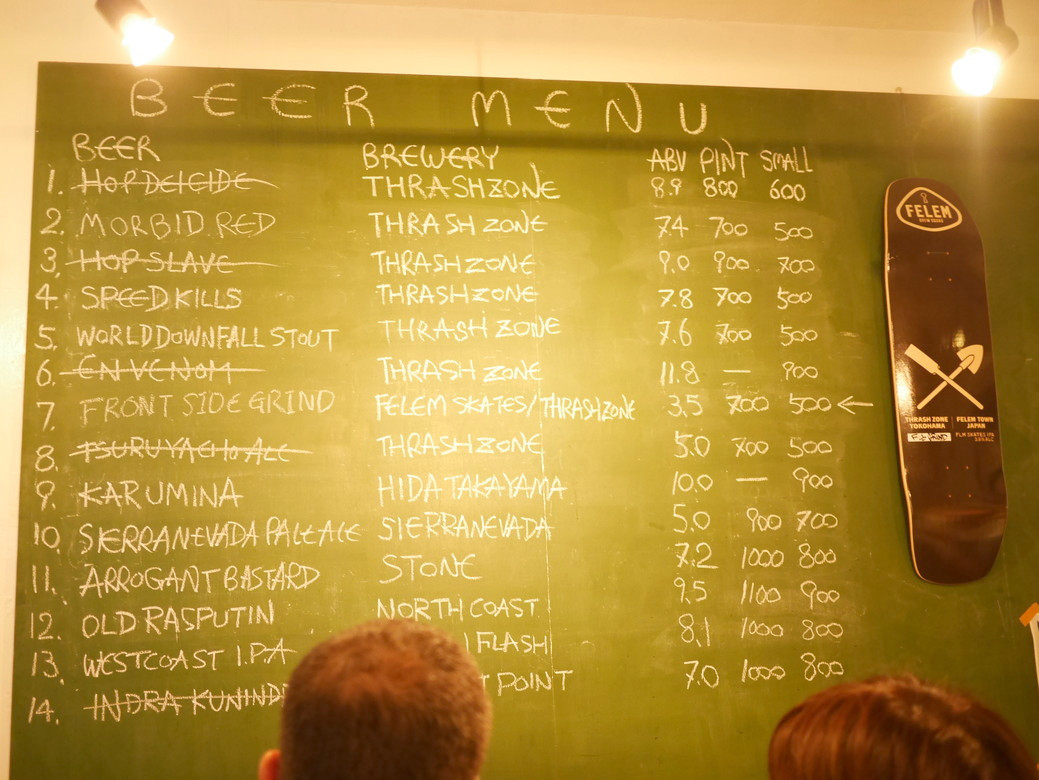 BEER MENU
BEER BREWERY ABV PINT SMALL
1. HOP DEICIDE THRASHZONE 8.9 800 600
2. MORBID RED THRASHZONE 7.4 700 500
3. HOP SLAVE THRASHZONE 9.0 900 700
4. SPEED KILLS THRASHZONE 7.8 700 500
5. WORLD DOWNFALL STOUT THRASH ZONE 7.6 700 500
6. EN VENOM THRASH ZONE 11.8 — 900
7. FRONT SIDE GRIND FELEM SKATES/THRASHZONE 3.5 700 500 ←
8. TSURUYACHO ALE THRASHZONE 5.0 700 500
9. KARUMINA HIDA TAKAYAMA 10.0 — 900
10. SIERRA NEVADA PALE ALE SIERRA NEVADA 5.0 900 700
11. ARROGANT BASTARD STONE 7.2 1000 800
12. OLD RASPUTIN NORTH COAST 9.5 1100 900
13. WESTCOAST I.P.A FLASH 8.1 1000 800
14. INDRA KUNINDRA POINT 7.0 1000 800
FELEM
THRASH ZONE FELEM TOWN
YOKOHAMA JAPAN